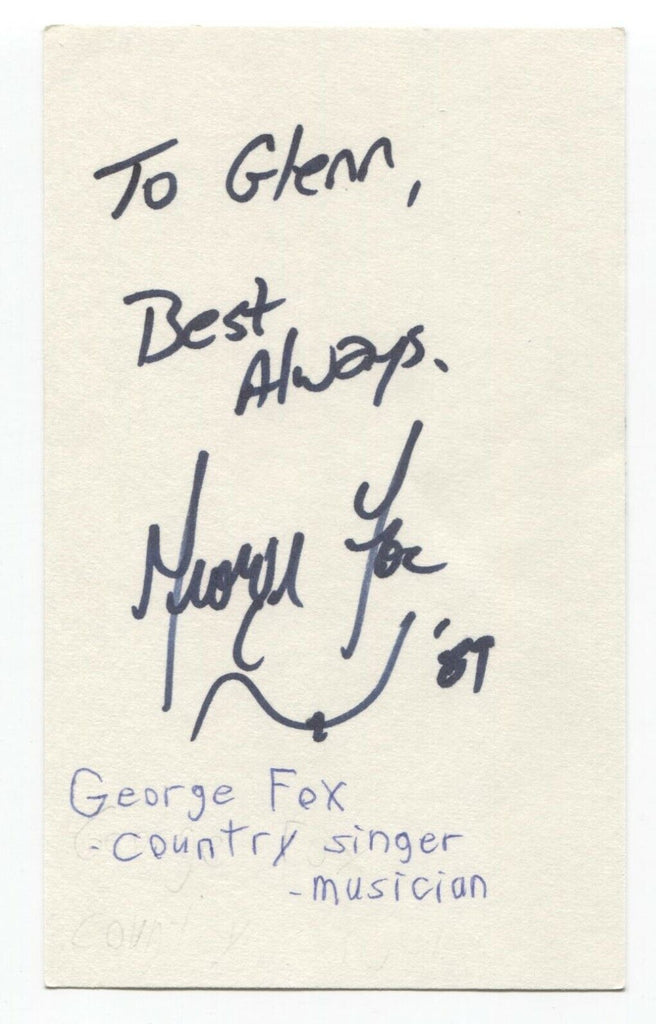 To Glenn,
Best
Always.
George Fox
'89
George Fox
-country singer
-musician